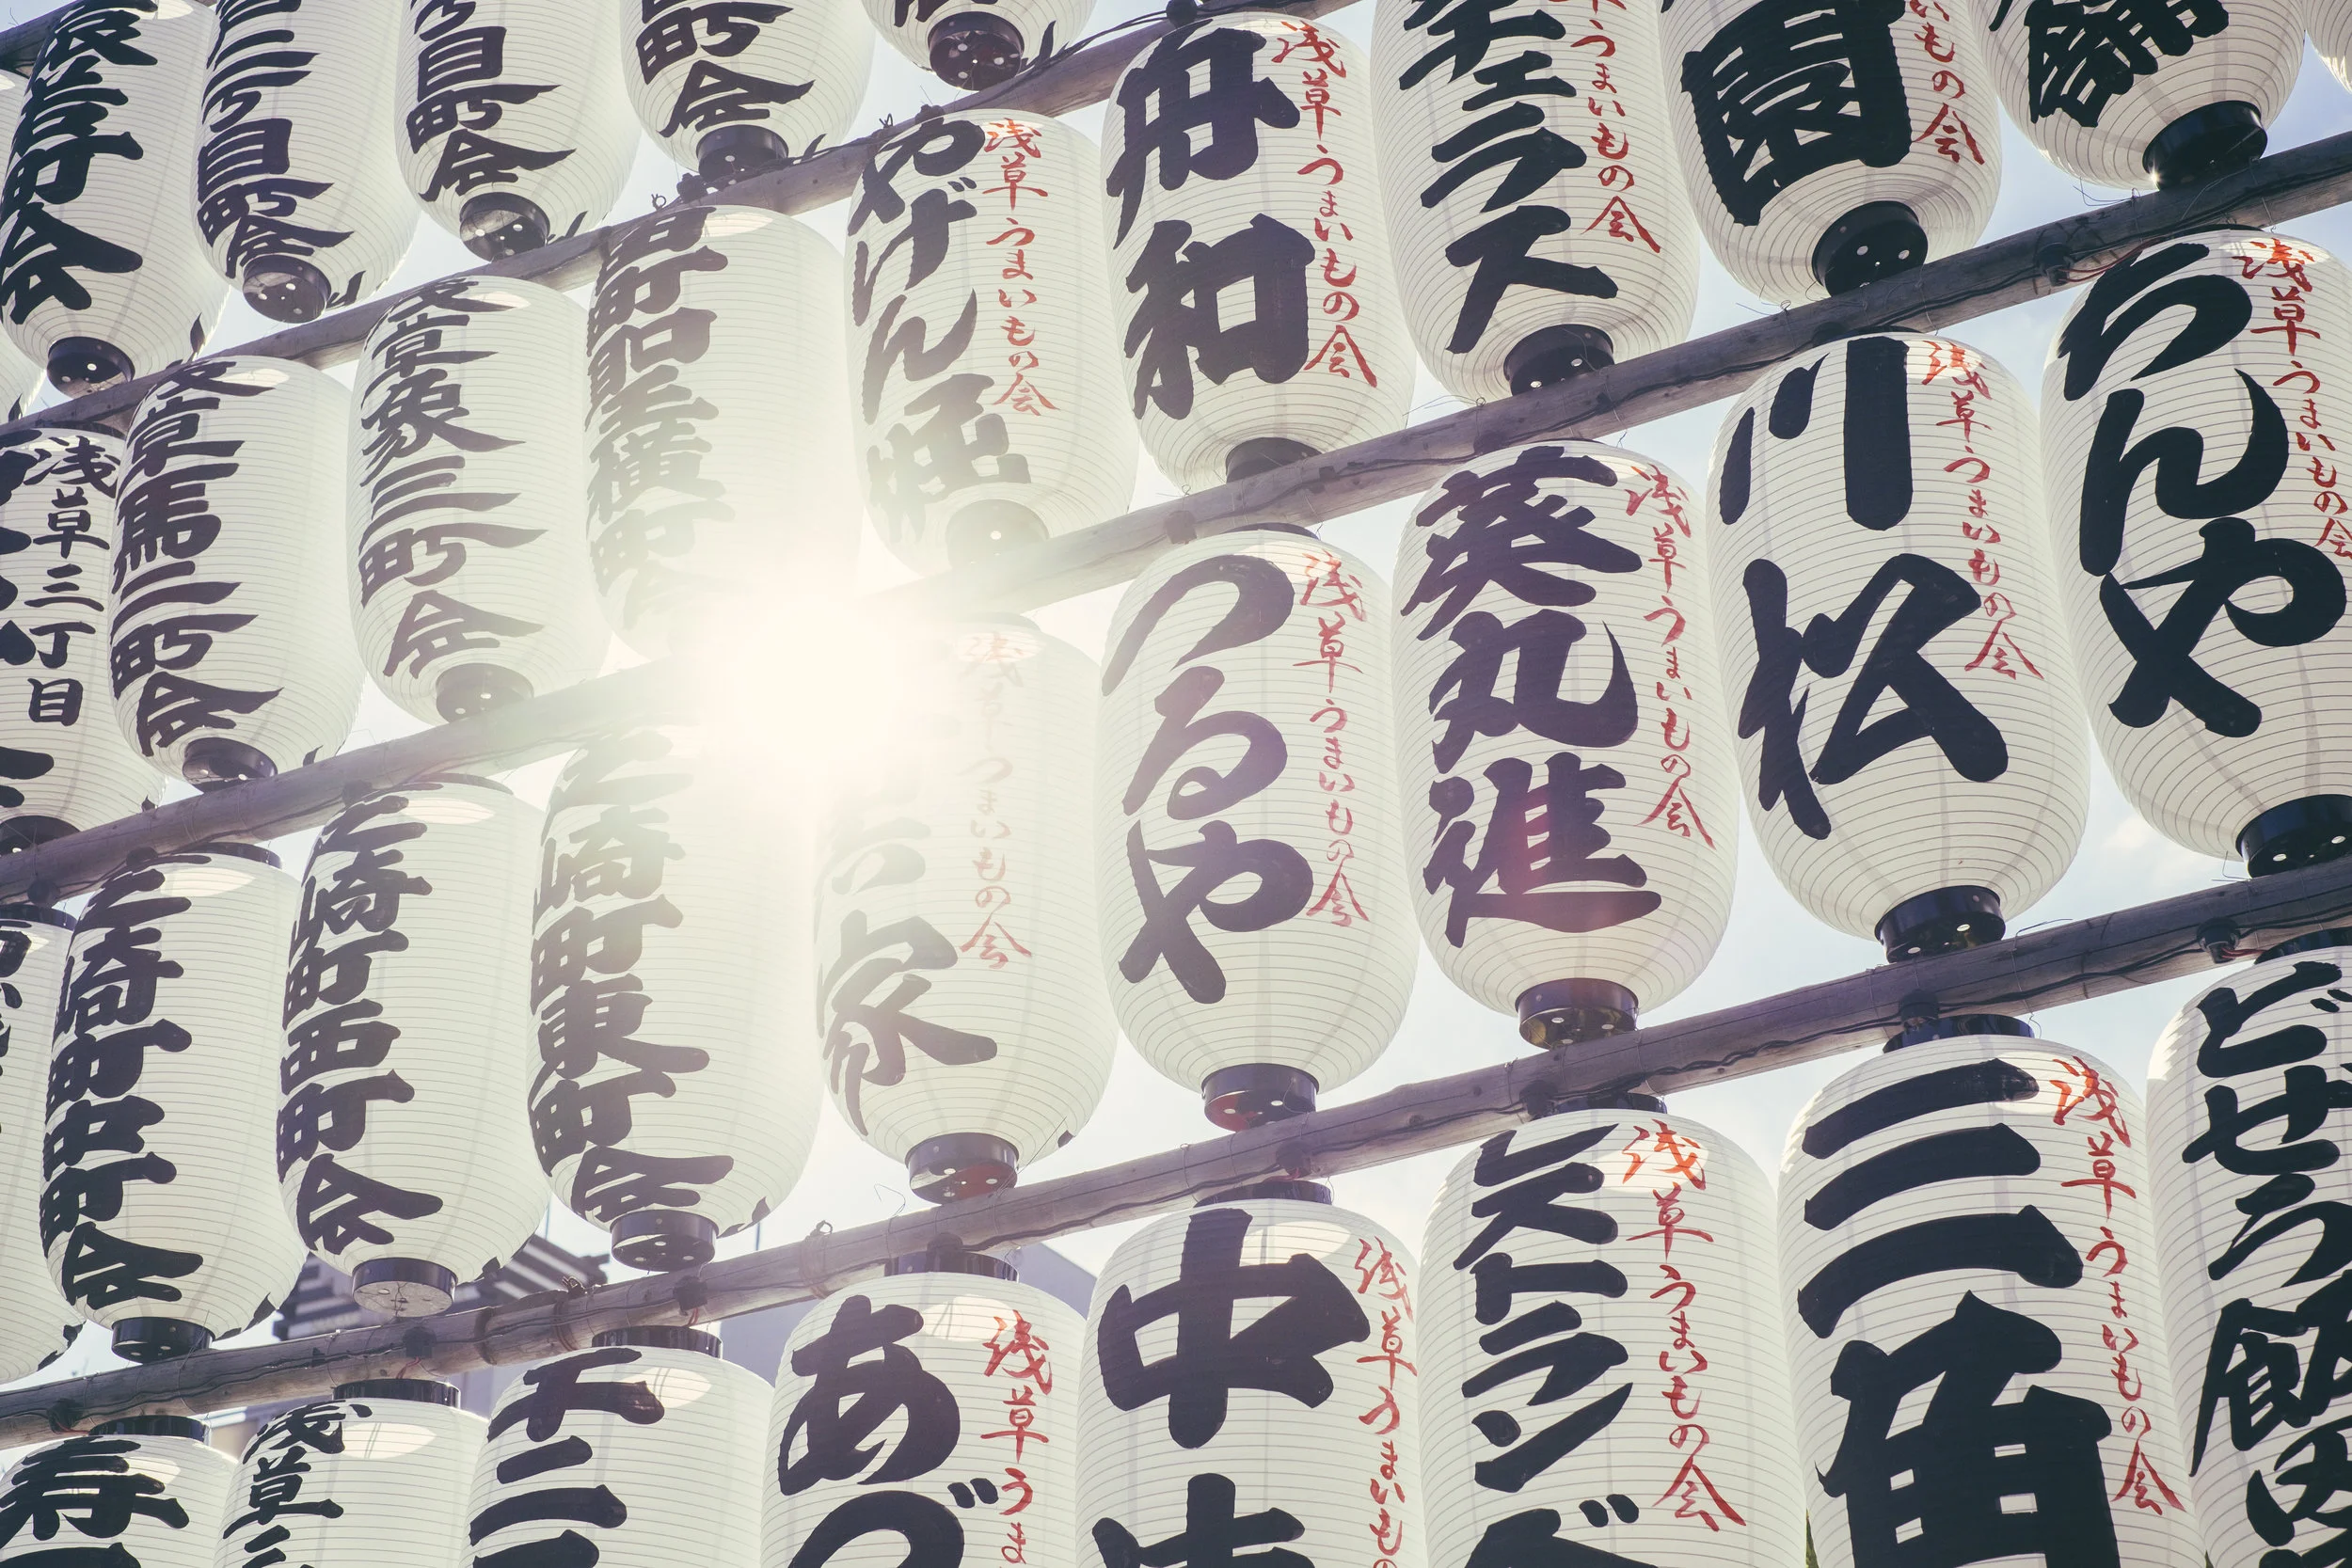 町会
二丁目町会
丁目町会
町会
浅草うまいもの会
舟和
うまいもの会
ラス
いもの会
園
浅草うまいもの会
やげん堀
浅草うまいもの会
ちんや
浅草うまいもの会
川松
浅草うまいもの会
葵丸進
浅草うまいもの会
つるや
浅草うまいもの会
家
浅草三丁目
浅草馬二町会
浅草象三町会
芝崎町中町会
芝崎町西町会
芝崎町東町会
どぜう飯田
浅草うまいもの会
三角
浅草うまいもの会
ストラン
浅草うまいも
中
浅草うま
あづ
浅草
寿